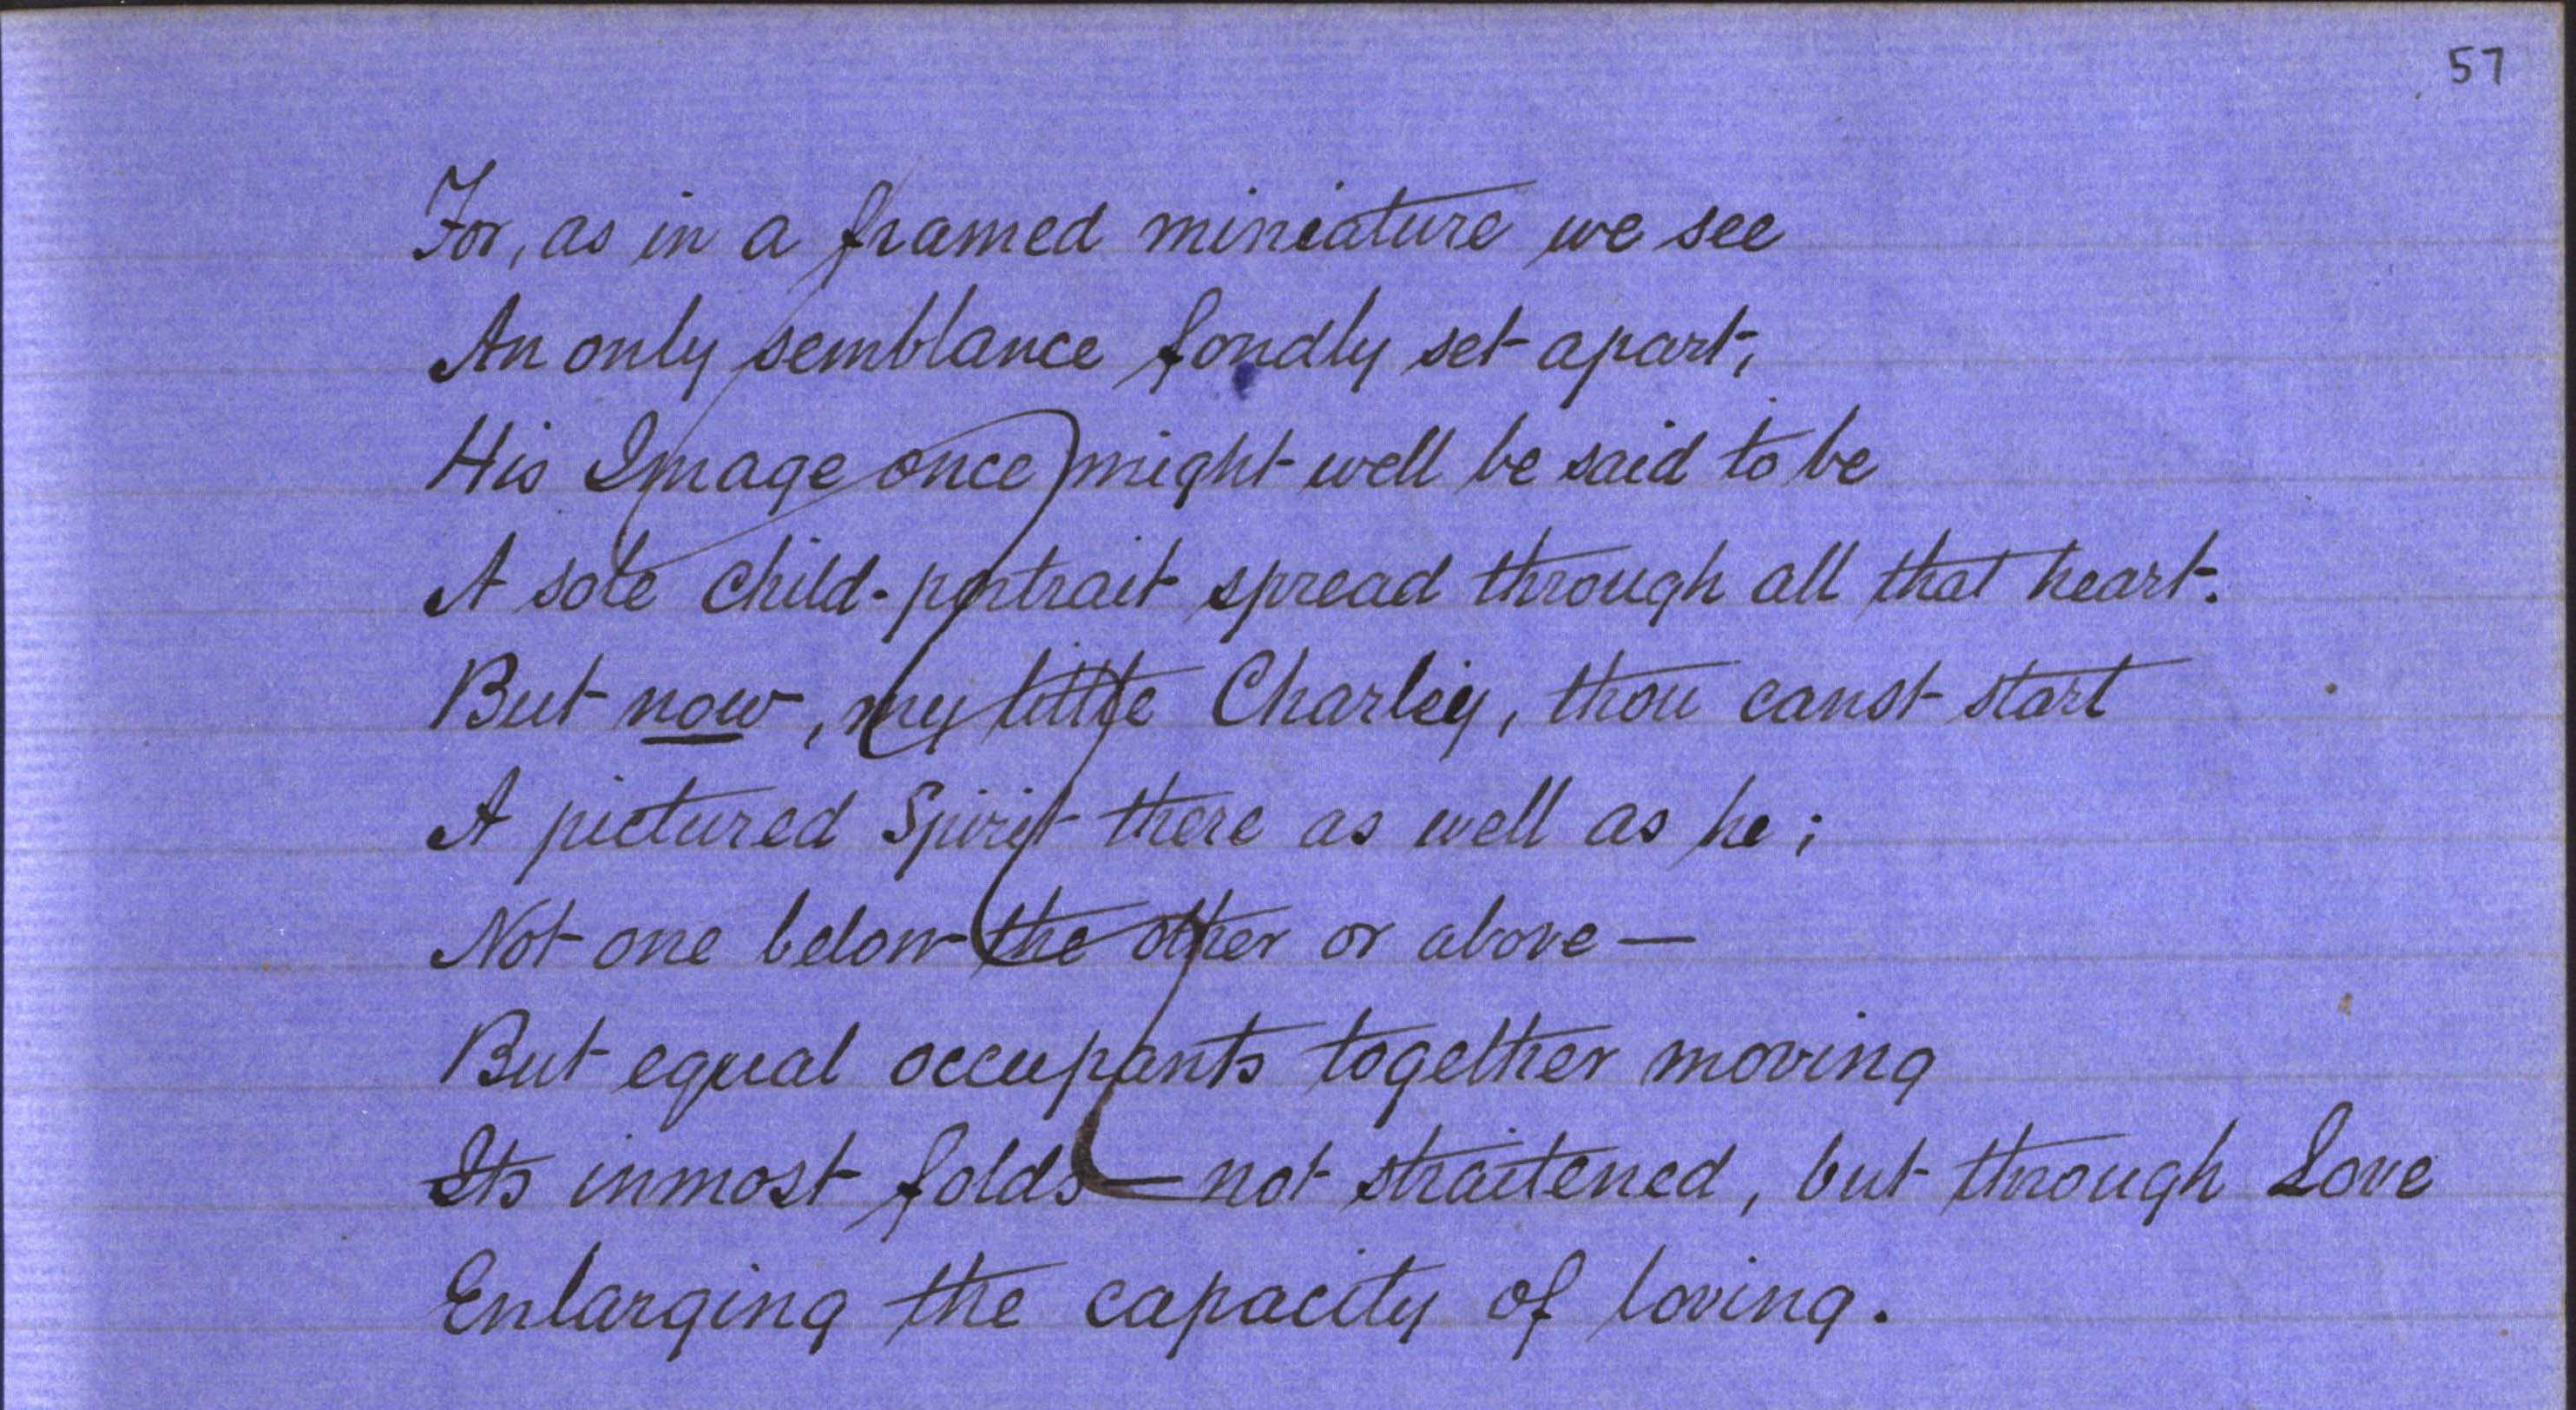 57
For, as in a framed miniature we see
An only semblance fondly set apart,
His Image once might well be said to be
A sole child-portrait spread through all that heart.
But now, my little Charley, thou canst start
A pictured Spirit there as well as he;
Not one below the other or above —
But equal occupants together moving
Its inmost folds — not straitened, but through Love
Enlarging the capacity of loving.